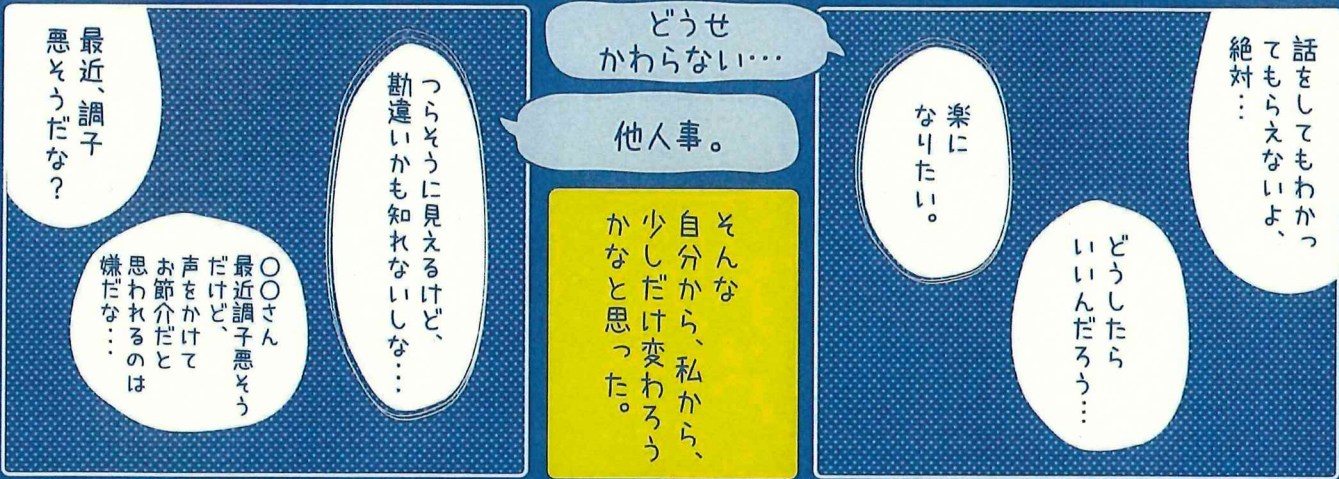 話をしてもわかっ
てもらえないよ、
絶対…
楽に
なりたい。
どうしたら
いいんだろう…
どうせ
かわらない…
他人事。
そんな
自分から、私から、
少しだけ変わろう
かなと思った。
つらそうに見えるけど、
勘違いかも知れないしな…
最近、調子
悪そうだな?
〇〇さん
最近調子悪そう
だけど、
声をかけて
お節介だと
思われるのは
嫌だな…